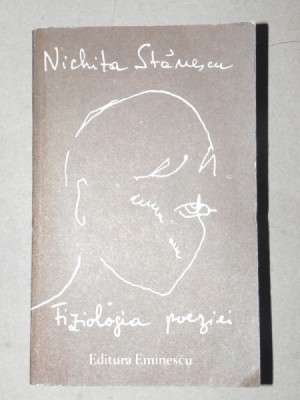 Nichita Stănescu
Fiziologia poeziei
Editura Eminescu